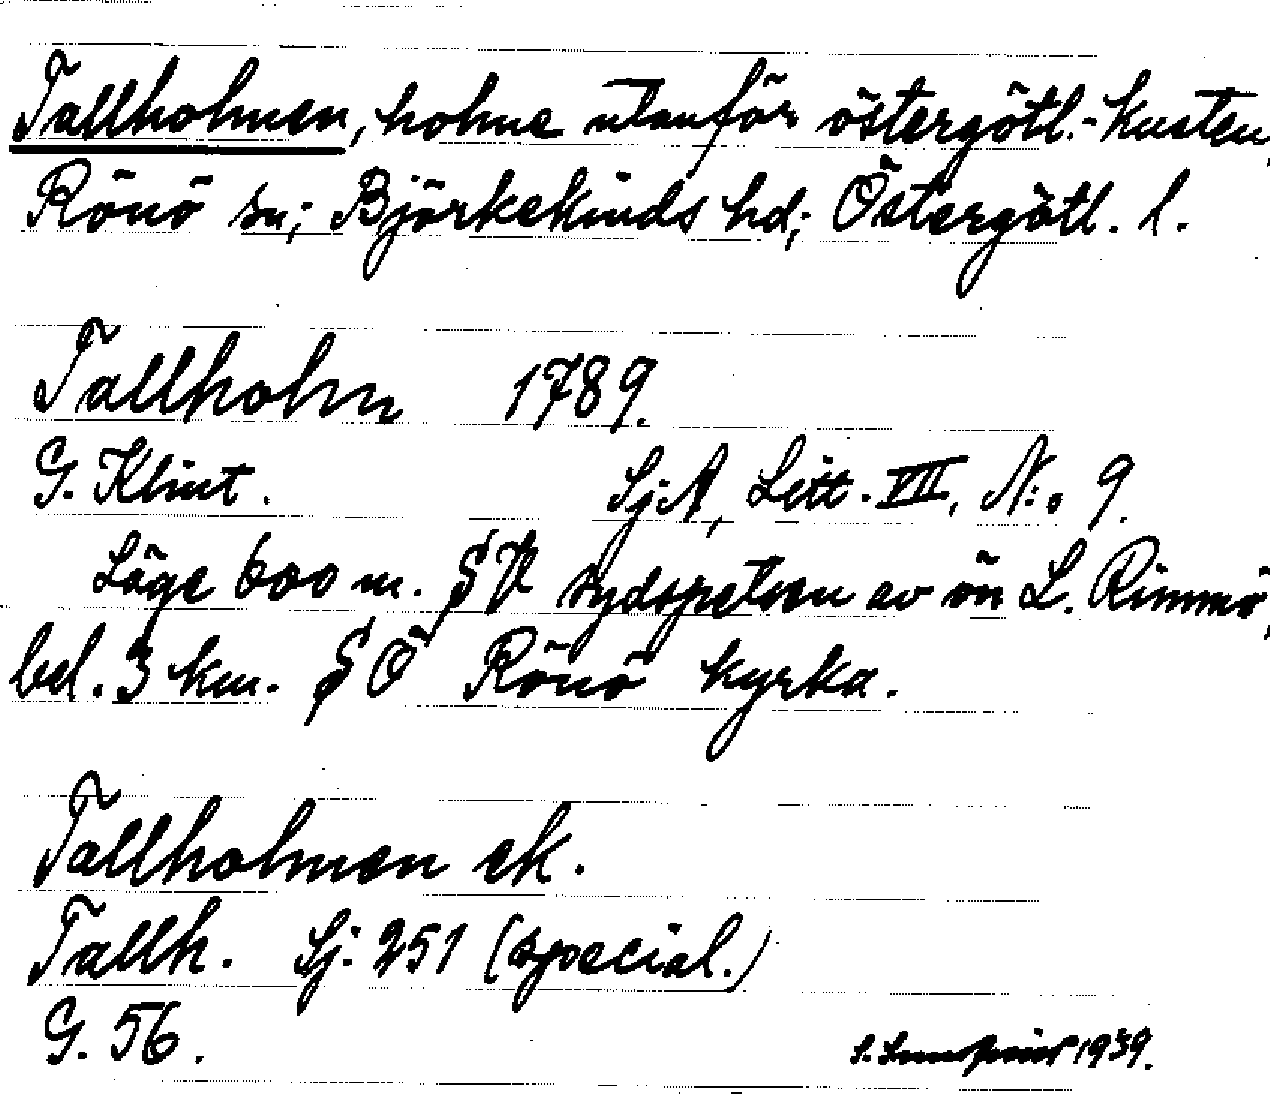 Tallholmen, holme utanför östergötl.-kusten,
Rönö sn; Björkekinds hd; Östergötl. l.
Tallholm 1789.
G. Klint. Sj:A, Litt. VII, N:o 9.
Läge 600 m. SV sydspetsen av ön L. Rimmö,
bel. 3 km. SO Rönö kyrka.
Tallholmen ek.
Tallh. Sj: 251 (special.)
G. 56.
1939.